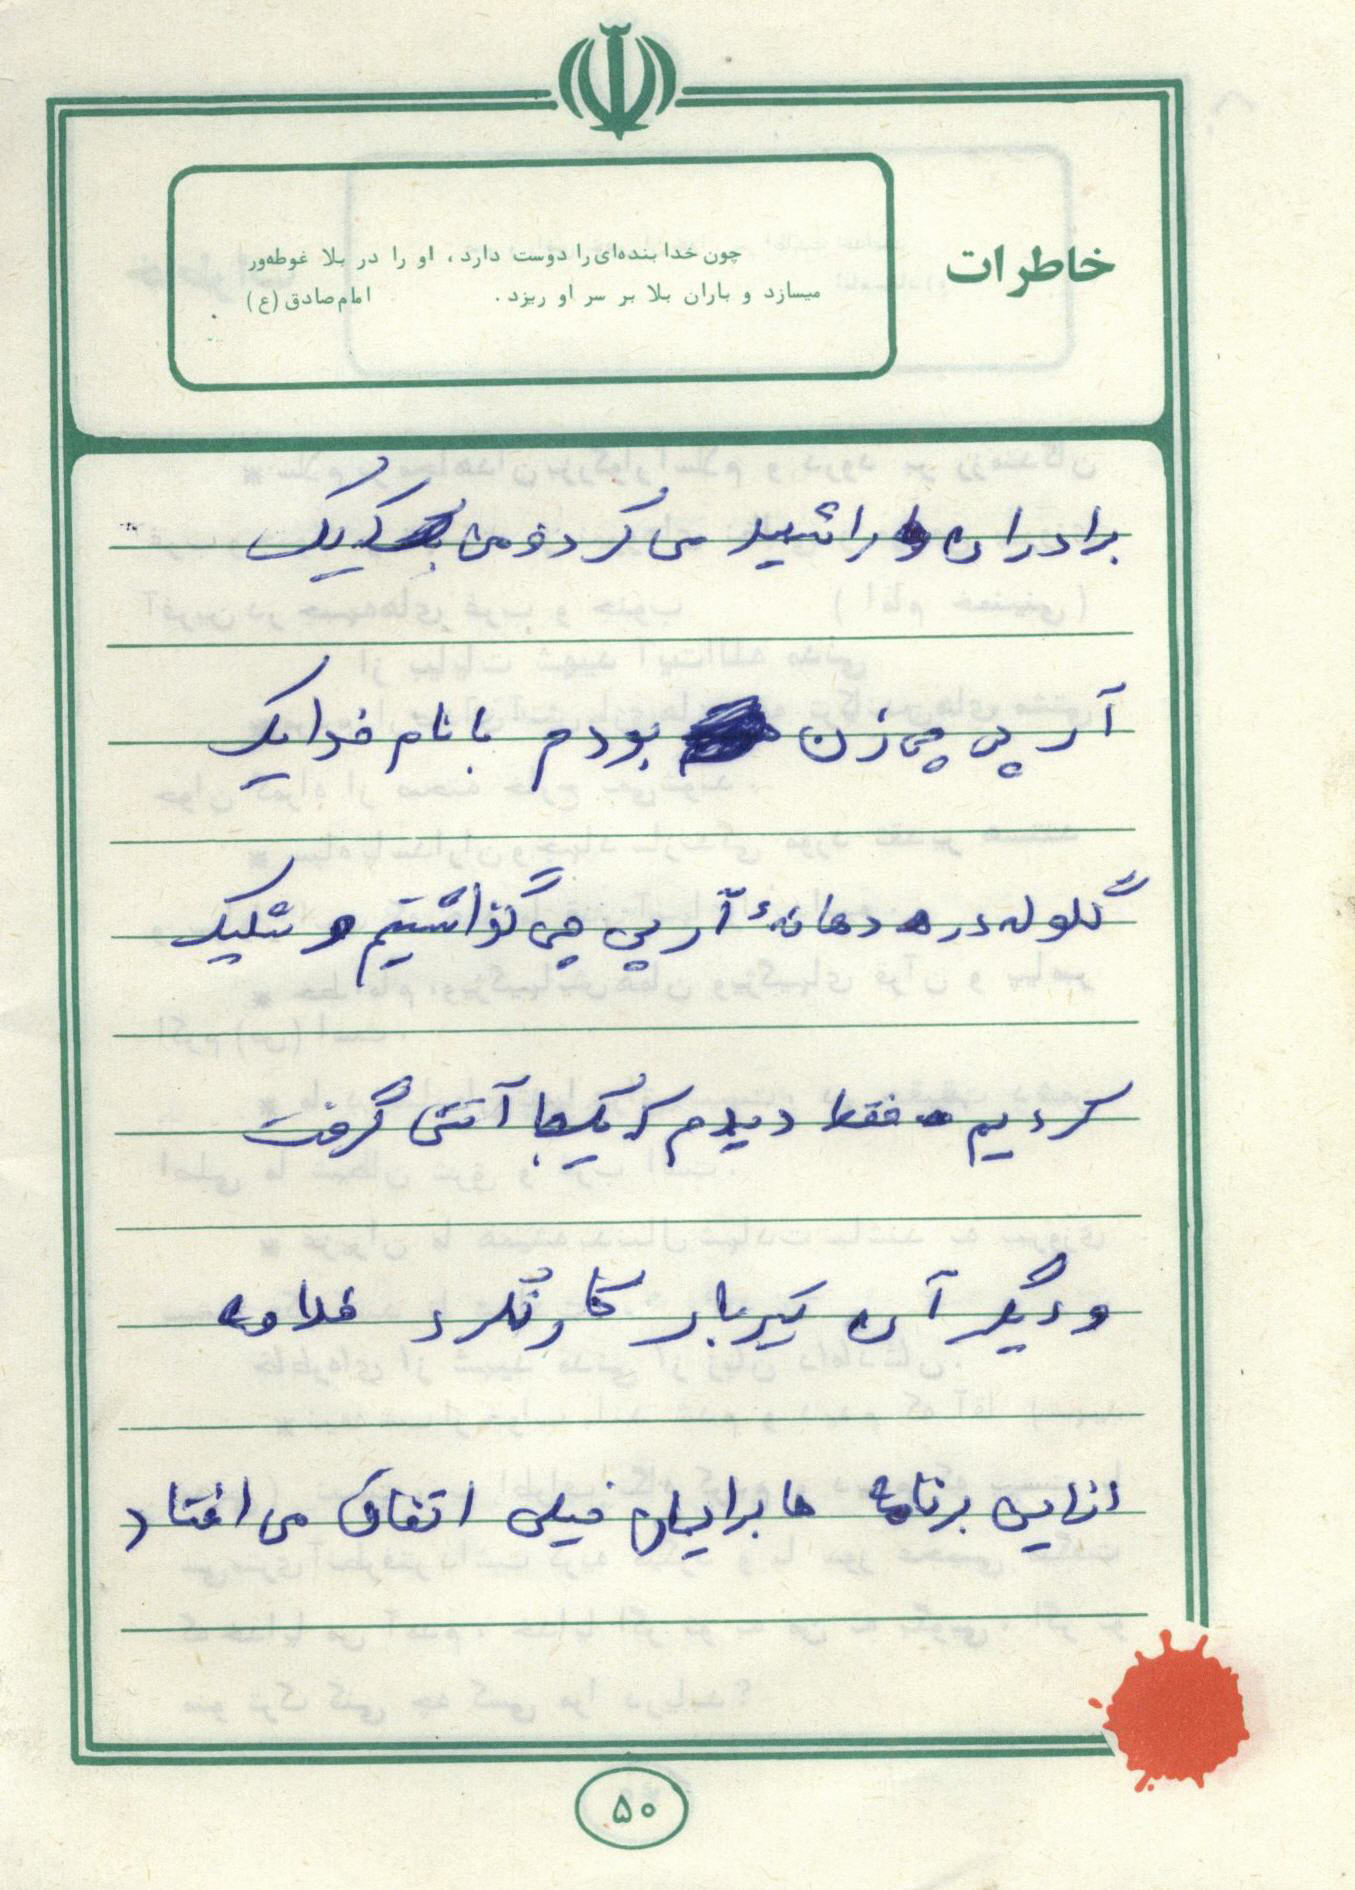 خاطرات
چون خدا بنده‌ای را دوست دارد، او را در بلا غوطه‌ور
میسازد و باران بلا بر سر او ریزد. امام صادق (ع)
برادران را شهید می کرد و من که یک
آر پی چی زن بودم با نام خدا یک
گلوله در دهانهٔ آر پی چی گذاشتیم و شلیک
کردیم فقط دیدم که یکجا آتش گرفت
و دیگر آن تیربار کار نکرد خلاصه
از این برنامه ها برایمان خیلی اتفاق می افتاد
۵۰